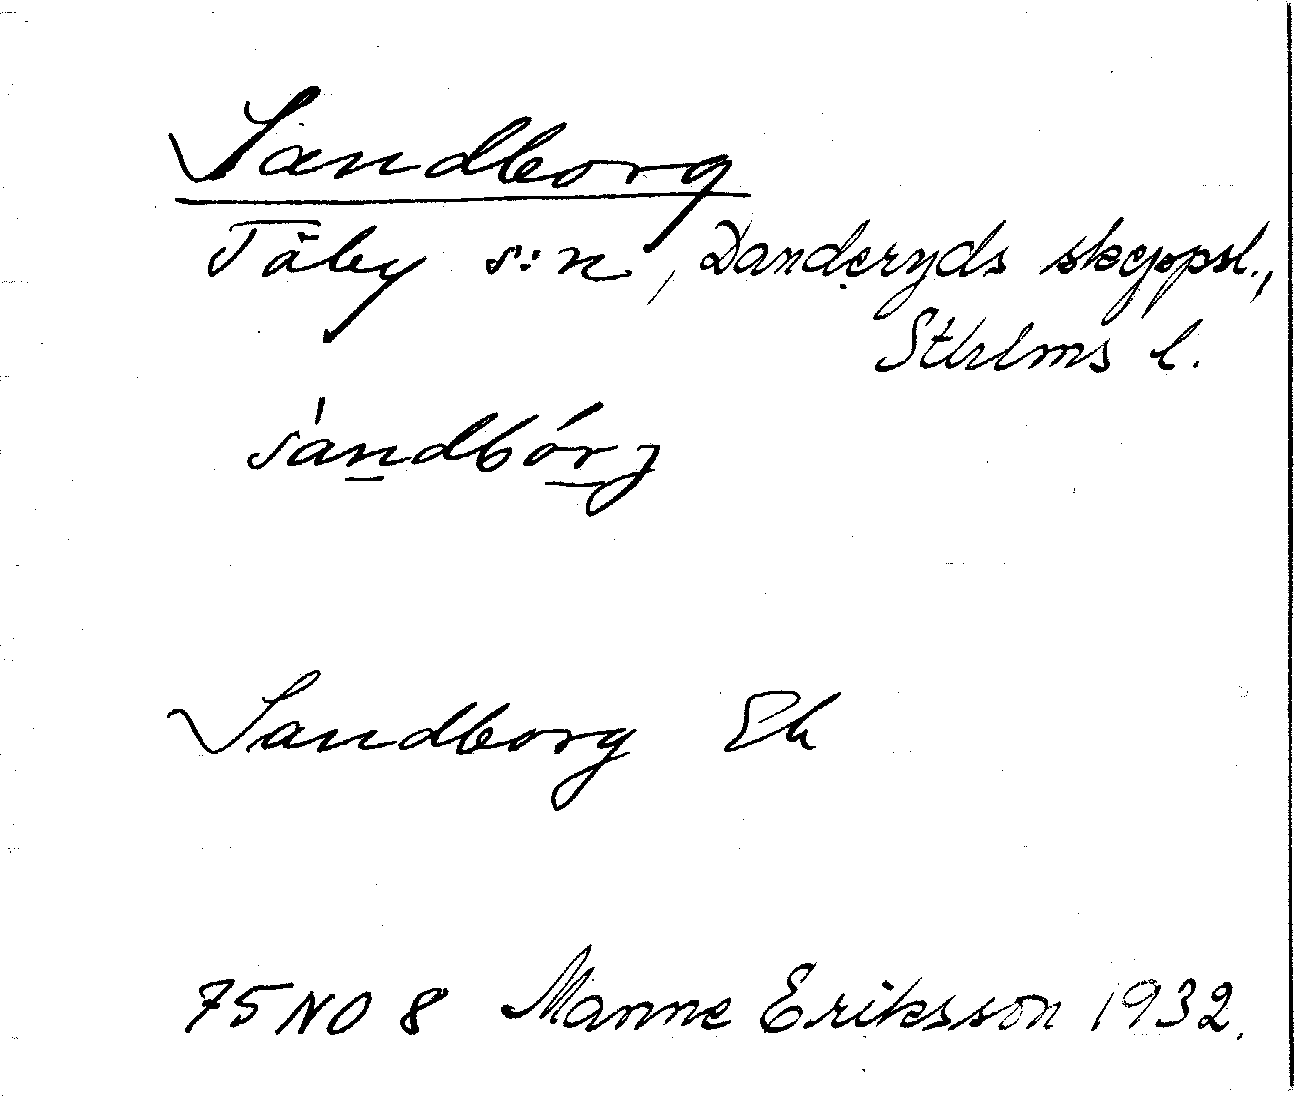 Sandborg
Täby s:n, Danderyds skeppsl.,
Sthlms l.
sándbórj
Sandborg Ek
75 NO 8 Manne Eriksson 1932.